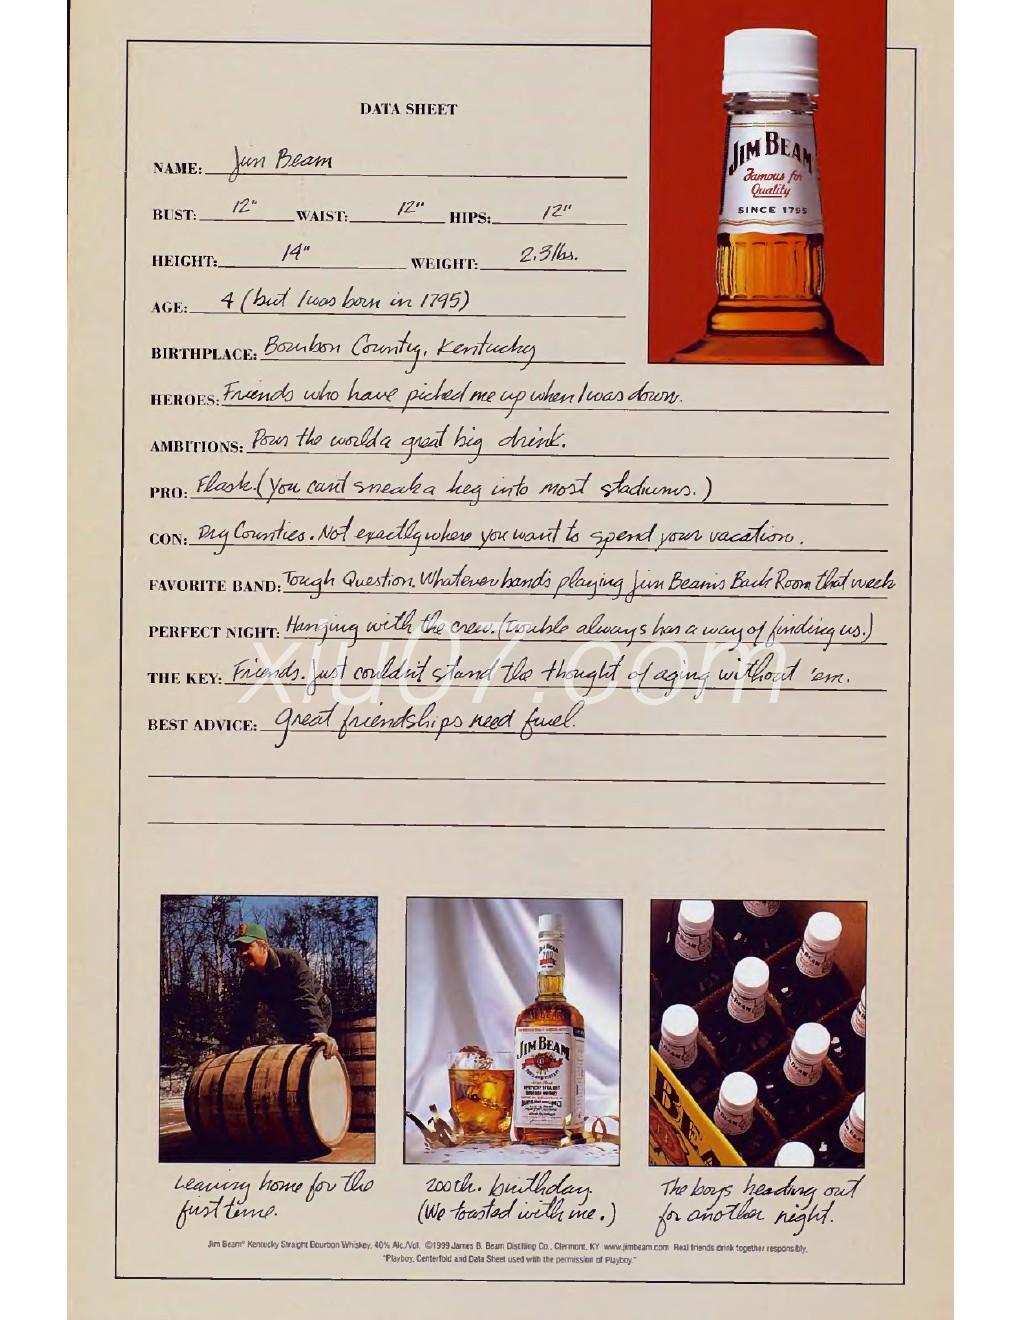 DATA SHEET
NAME: Jim Beam
BUST: 12" WAIST: 12" HIPS: 12"
HEIGHT: 14" WEIGHT: 2.3 lbs.
AGE: 4 (but I was born in 1795)
BIRTHPLACE: Bourbon County, Kentucky
HEROES: Friends who have picked me up when I was down.
AMBITIONS: Pour the world a great big drink.
PRO: Flask. (You can't sneak a keg into most stadiums.)
CON: Dry Counties. Not exactly where you want to spend your vacation.
FAVORITE BAND: Tough Question. Whatever band's playing Jim Beam's Back Room that week
PERFECT NIGHT: Hanging with the crew. (Trouble always has a way of finding us.)
THE KEY: Friends. Just couldn't stand the thought of aging without 'em.
BEST ADVICE: Great friendships need fuel.
JIM BEAM
Famous for
Quality
SINCE 1795
xiu07.com
JIM BEAM
KENTUCKY STRAIGHT
BOURBON WHISKEY
Leaving home for the
first time.
200th. birthday.
(We toasted with me.)
The boys heading out
for another night.
Jim Beam® Kentucky Straight Bourbon Whiskey, 40% Alc./Vol. ©1999 James B. Beam Distilling Co., Clermont, KY www.jimbeam.com Real friends drink together responsibly.
"Playboy, Centerfold and Data Sheet used with the permission of Playboy."